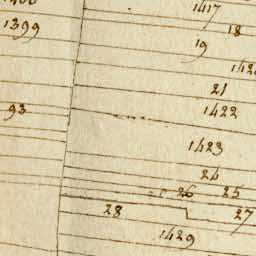 1417
1399
18
19
1420
21
1422
93
1423
24
26 25
28
27
1429